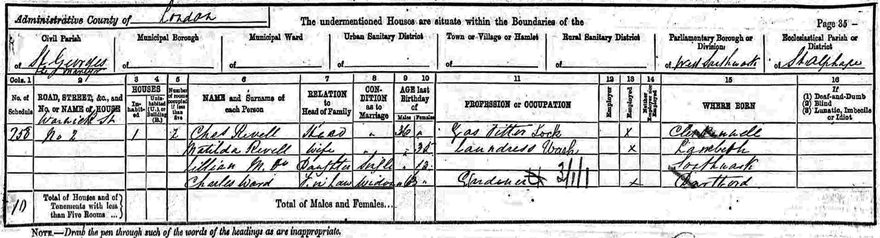 Administrative County of London The undermentioned Houses are situate within the Boundaries of the Page 35
Civil Parish Municipal Borough Municipal Ward Urban Sanitary District Town or Village or Hamlet Rural Sanitary District Parliamentary Borough or Division Ecclesiastical Parish or District
of St Georges the Martyr of of of of of of West Southwark of St Alphage
Cols. 1 2 3 4 5 6 7 8 9 10 11 12 13 14 15 16
No. of Schedule ROAD, STREET, &c., and No. or NAME of HOUSE HOUSES Inhabited Uninhabited (U.), or Building (B.) Number of rooms occupied if less than five NAME and Surname of each Person RELATION to Head of Family CONDITION as to Marriage AGE last Birthday of Males Females PROFESSION or OCCUPATION Employer Employed WHERE BORN If (1) Deaf-and-Dumb (2) Blind (3) Lunatic, Imbecile or Idiot
Warwick St
258 No 2 1 2 Chas Revell Head " 36 " Gas Fitter x Clerkenwell
Matilda Revell Wife " " 35 Laundress Wash x Lambeth
Lillian M. Do Daughter Single " 12 Southwark
Charles Ward F in Law Widower Gardener x Dartford
10 Total of Houses and of Tenements with less than Five Rooms ... Total of Males and Females...
NOTE.—Draw the pen through such of the words of the headings as are inappropriate.